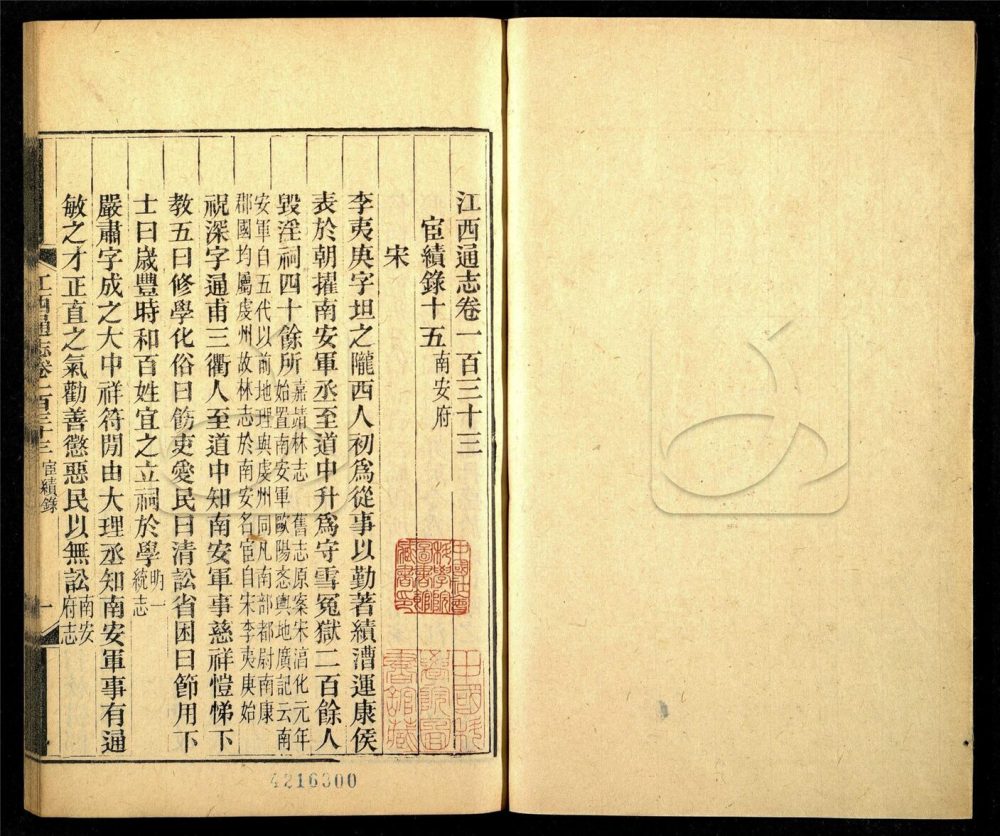 江西通志卷一百三十三
宦績錄十五南安府
宋
李夷庚字坦之隴西人初爲從事以勤著績漕運康侯
表於朝擢南安軍丞至道中升爲守雪冤獄二百餘人
毀淫祠四十餘所嘉靖林志 舊志原案宋淳化元年
始置南安軍歐陽忞輿地廣記云南
安軍自五代以前地理與虔州同凡南部都尉南康
郡國均屬虔州故林志於南安名宦自宋李夷庚始
祝深字通甫三衢人至道中知南安軍事慈祥愷悌下
教五曰修學化俗曰飭吏愛民曰清訟省困曰節用下
士曰歲豐時和百姓宜之立祠於學明一
統志
嚴肅字成之大中祥符閒由大理丞知南安軍事有通
敏之才正直之氣勸善懲惡民以無訟南安
府志
江西通志卷一百三十三 宦績錄 一
4216300